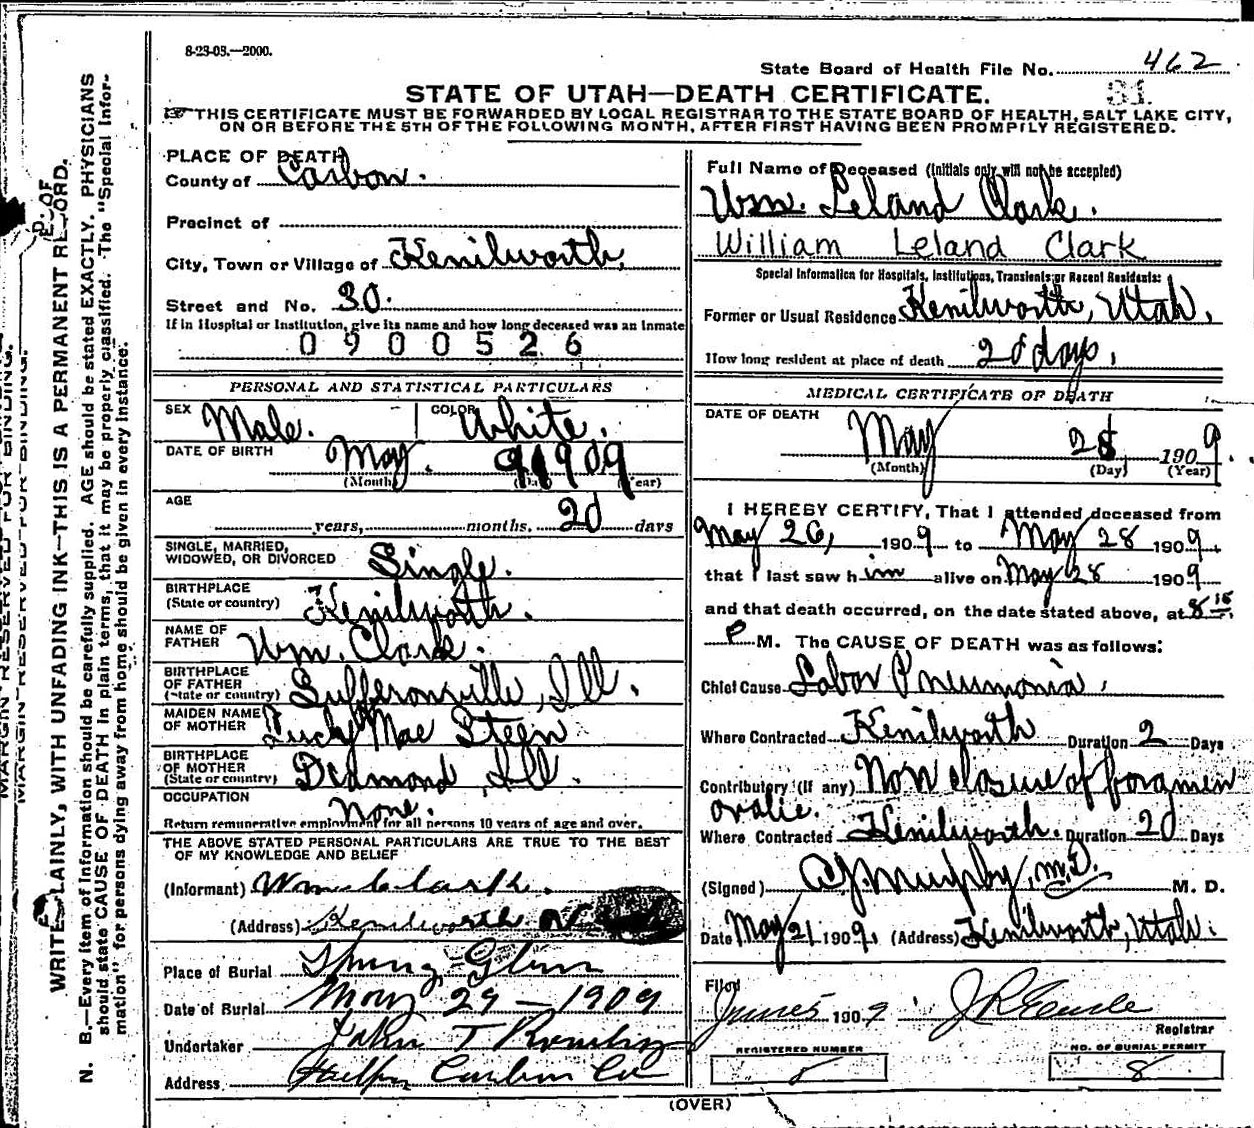 8-23-05.—2000.
State Board of Health File No. 462
STATE OF UTAH—DEATH CERTIFICATE.
31
THIS CERTIFICATE MUST BE FORWARDED BY LOCAL REGISTRAR TO THE STATE BOARD OF HEALTH, SALT LAKE CITY,
ON OR BEFORE THE 5TH OF THE FOLLOWING MONTH, AFTER FIRST HAVING BEEN PROMPTLY REGISTERED.
PLACE OF DEATH
County of Carbon.
Precinct of
City, Town or Village of Kenilworth,
Street and No. 30.
If in Hospital or Institution, give its name and how long deceased was an inmate
0 9 0 0 5 2 6
PERSONAL AND STATISTICAL PARTICULARS
SEX Male. COLOR White.
DATE OF BIRTH May. 9 1909
(Month) (Day) (Year)
AGE
years, months. 20 days
SINGLE, MARRIED,
WIDOWED, OR DIVORCED Single.
BIRTHPLACE
(State or country) Kenilworth.
NAME OF
FATHER Wm. Clark.
BIRTHPLACE
OF FATHER
(State or country) Ill.
MAIDEN NAME
OF MOTHER Mae Steen
BIRTHPLACE
OF MOTHER
(State or country) Dedmond, Ill.
OCCUPATION
None.
Return remunerative employment for all persons 10 years of age and over.
THE ABOVE STATED PERSONAL PARTICULARS ARE TRUE TO THE BEST
OF MY KNOWLEDGE AND BELIEF
(Informant) Wm Clark.
(Address) Kenilworth
Place of Burial Spring Glenn
Date of Burial May 29 — 1909
Undertaker John T
Address Helper Carbon Co
Full Name of Deceased (Initials only will not be accepted)
Wm. Leland Clark.
William Leland Clark
Special Information for Hospitals, Institutions, Transients or Recent Residents:
Former or Usual Residence Kenilworth, Utah.
How long resident at place of death 20 days.
MEDICAL CERTIFICATE OF DEATH
DATE OF DEATH
May 28 1909.
(Month) (Day) (Year)
I HEREBY CERTIFY, That I attended deceased from
May 26, 1909 to May 28 1909.
that I last saw him alive on May 28 1909
and that death occurred, on the date stated above, at 8 15
P M. The CAUSE OF DEATH was as follows:
Chief Cause Lobar Pneumonia.
Where Contracted Kenilworth Duration 2 Days
Contributory (If any) Non closure of foramen
ovalie.
Where Contracted Kenilworth. Duration 20 Days
(Signed) A J. Murphy, M.D. M. D.
Date May 21 1909. (Address) Kenilworth, Utah.
Filed
June 5 1909 J R
Registrar
REGISTERED NUMBER
NO. OF BURIAL PERMIT
8
(OVER)
MARGIN RESERVED FOR BINDING.
WRITE PLAINLY, WITH UNFADING INK—THIS IS A PERMANENT RECORD.
N. B.—Every item of information should be carefully supplied. AGE should be stated EXACTLY. PHYSICIANS
should state CAUSE OF DEATH in plain terms, that it may be properly classified. The "Special Infor-
mation" for persons dying away from home should be given in every instance.